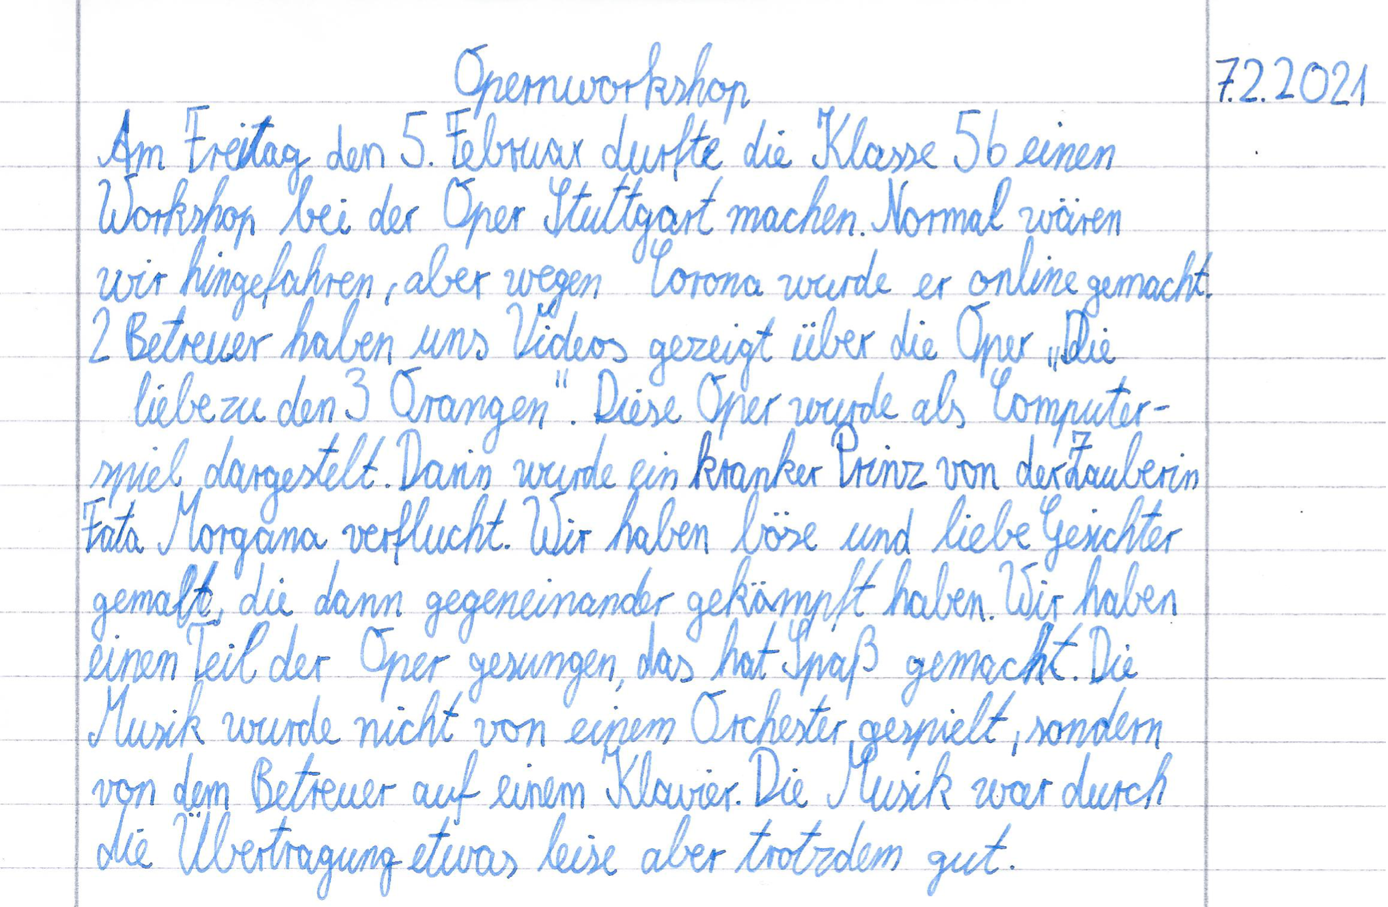 Opernworkshop 7.2.2021
Am Freitag den 5. Februar durfte die Klasse 5b einen
Workshop bei der Oper Stuttgart machen. Normal wären
wir hingefahren, aber wegen Corona wurde er online gemacht.
2 Betreuer haben uns Videos gezeigt über die Oper „Die
liebe zu den 3 Orangen“. Diese Oper wurde als Computer-
spiel dargestelt. Darin wurde ein kranker Prinz von der Zauberin
Fata Morgana verflucht. Wir haben böse und liebe Gesichter
gemalt, die dann gegeneinander gekämpft haben. Wir haben
einen Teil der Oper gesungen, das hat Spaß gemacht. Die
Musik wurde nicht von einem Orchester gespielt, sondern
von dem Betreuer auf einem Klavier. Die Musik war durch
die Übertragung etwas leise aber trotzdem gut.